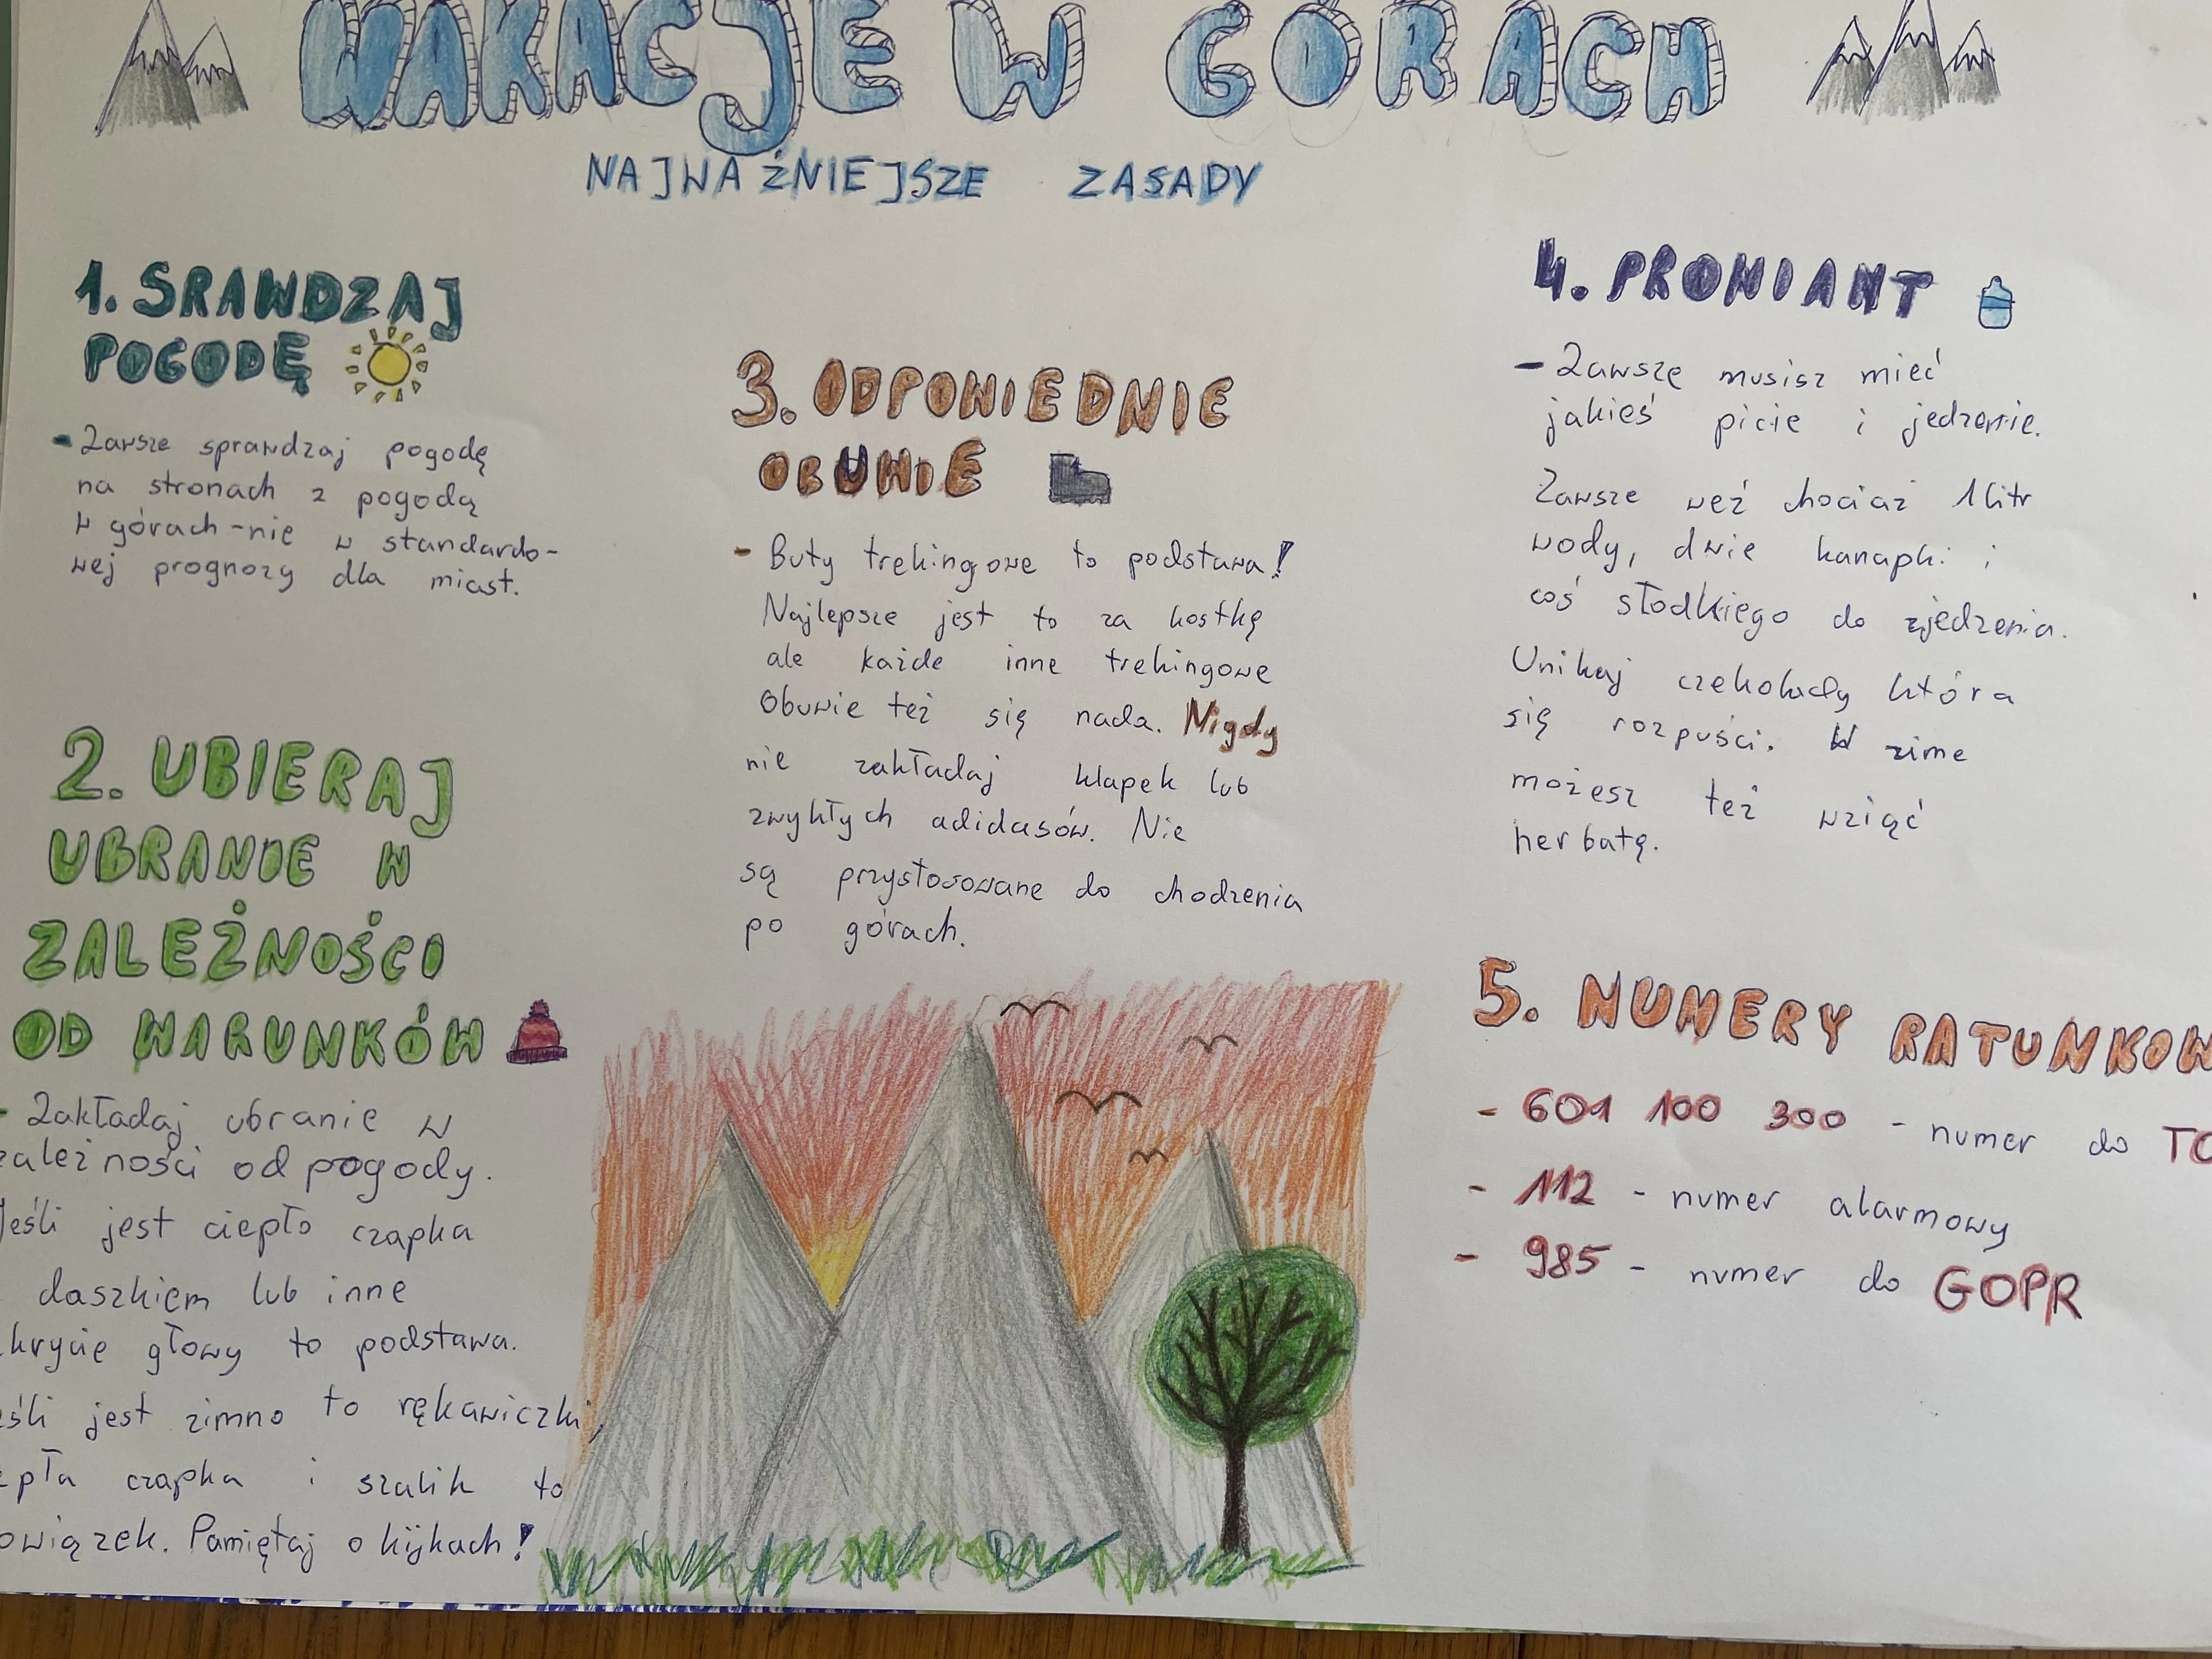 WAKACJE W GÓRACH
NAJWAŻNIEJSZE ZASADY
1. SRAWDZAJ
POGODĘ
- Zawsze sprawdzaj pogodę
na stronach z pogodą
w górach - nie w standardo-
wej prognozy dla miast.
2. UBIERAJ
UBRANIE W
ZALEŻNOŚCI
OD WARUNKÓW
- Zakładaj ubranie w
zależności od pogody.
Jeśli jest ciepło czapka
daszkiem lub inne
krycie głowy to podstawa.
eśli jest zimno to rękawiczki,
epła czapka i szalik to
owiązek. Pamiętaj o kijkach!
3. ODPOWIEDNIE
OBUWIE
- Buty trekingowe to podstawa!
Najlepsze jest to za kostkę
ale każde inne trekingowe
Obuwie też się nada. Nigdy
nie zakładaj klapek lub
zwykłych adidasów. Nie
są przystosowane do chodzenia
po górach.
4. PROWIANT
- Zawsze musisz mieć
jakieś picie i jedzenie.
Zawsze weź chociaż 1 litr
wody, dwie kanapki i
coś słodkiego do zjedzenia.
Unikaj czekolady która
się rozpuści. W zime
możesz też wziąć
herbatę.
5. NUMERY RATUNKOW
- 601 100 300 - numer do TO
- 112 - numer alarmowy
- 985 - numer do GOPR